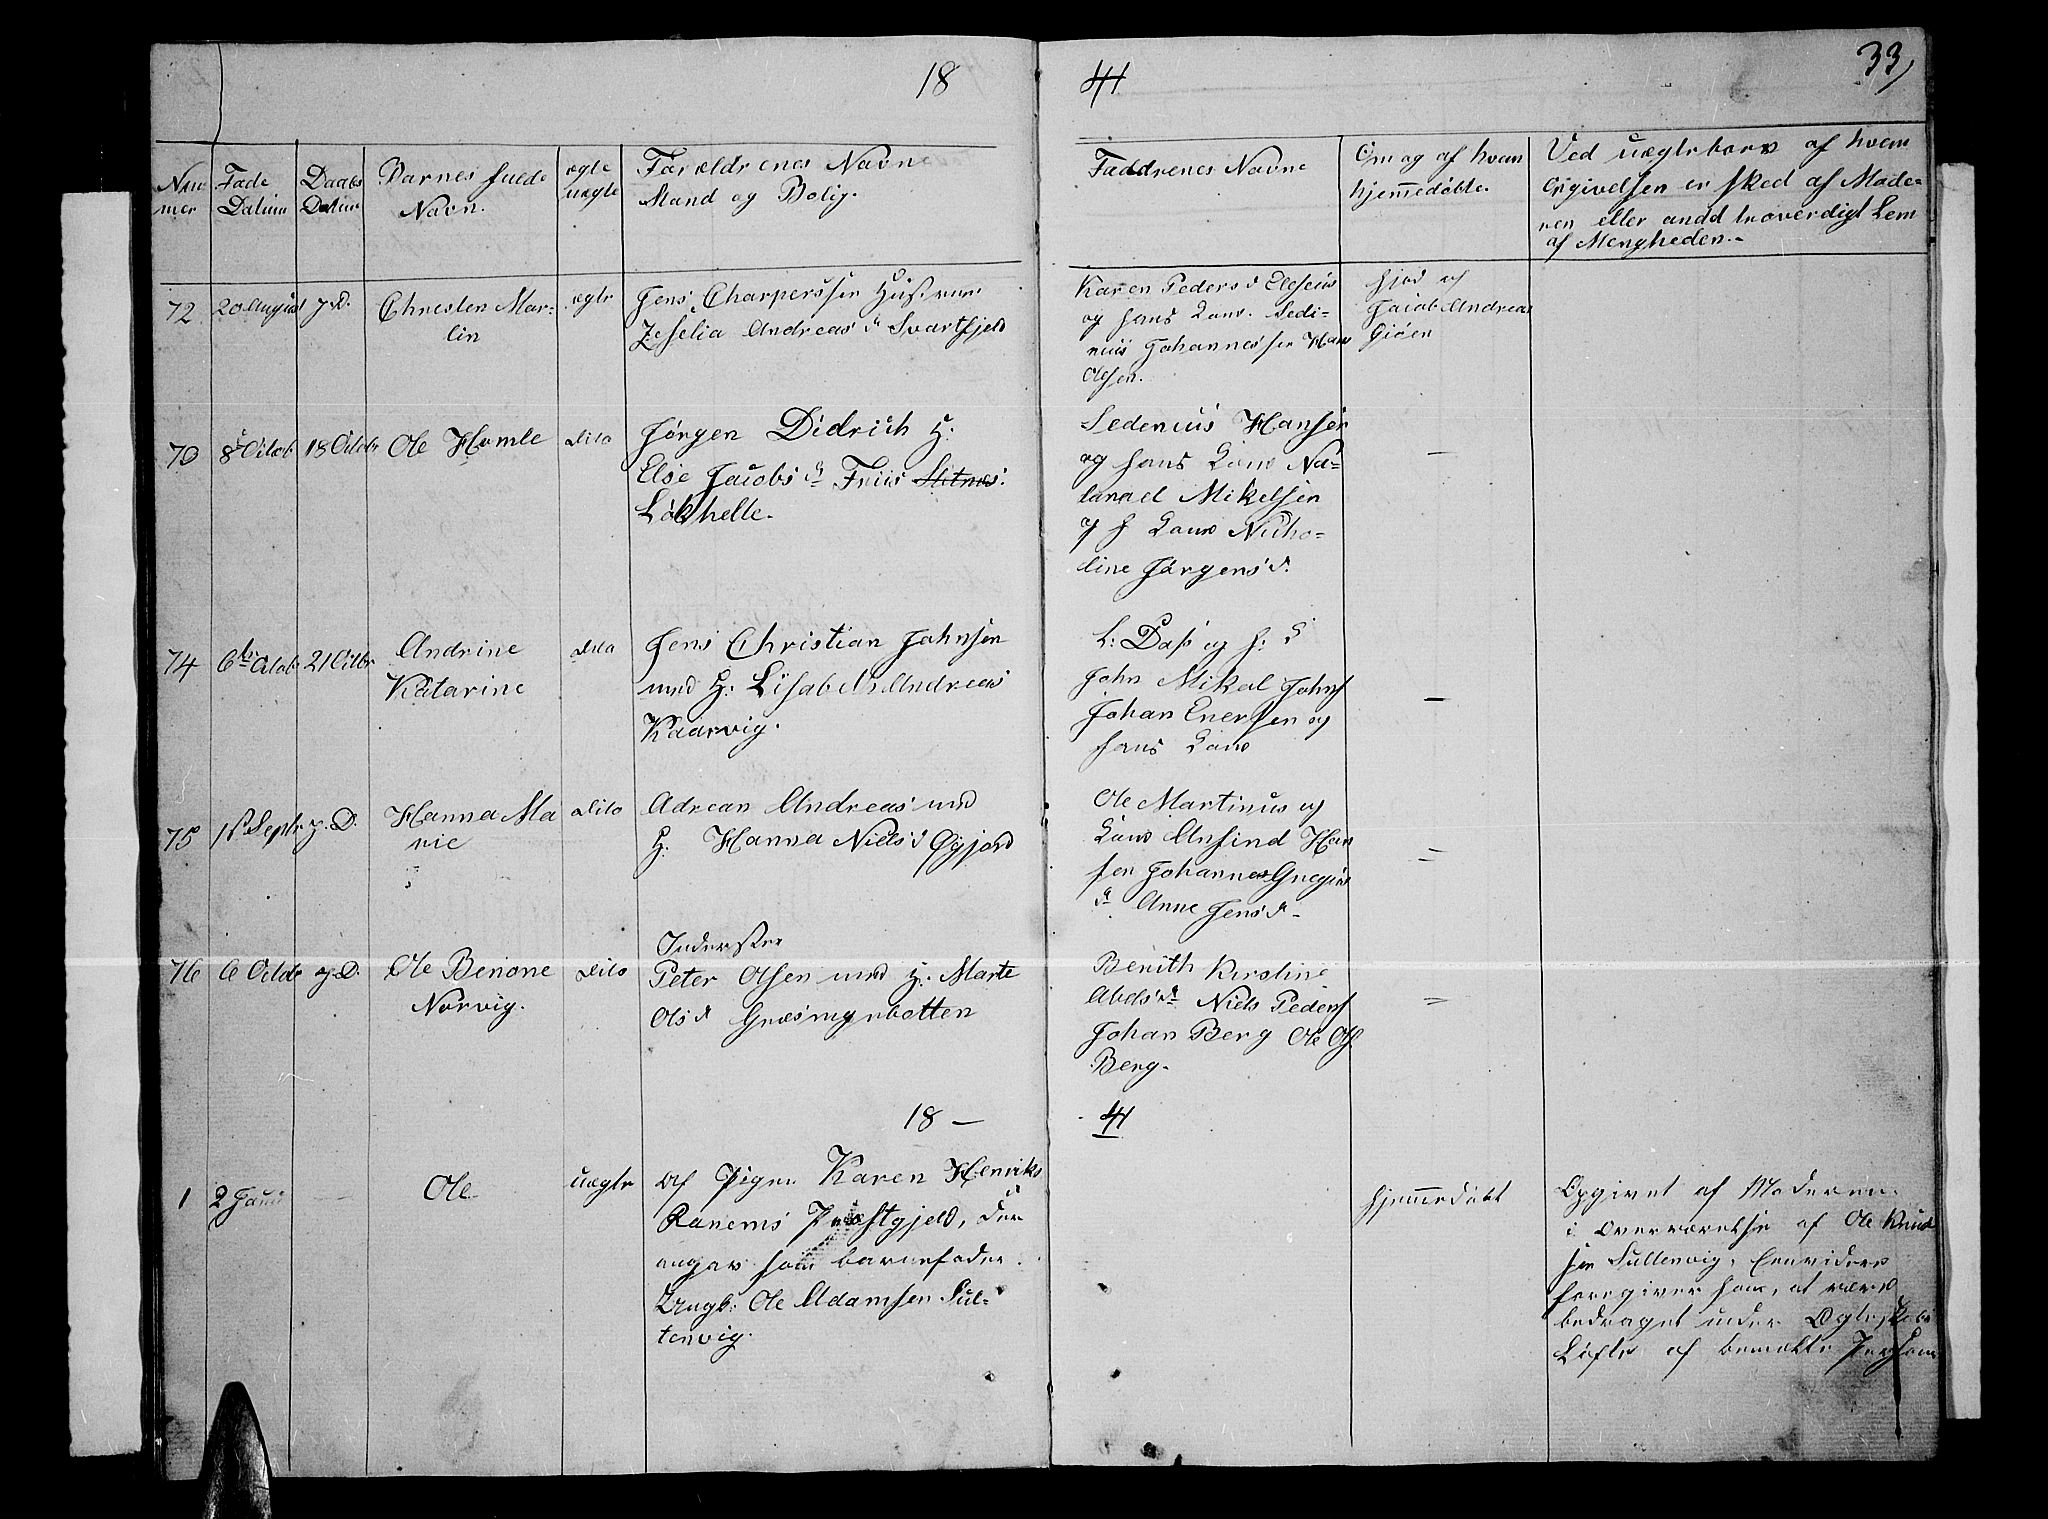 18
41
33
Nummer
Føde Datum
Daabs Datum
Barnes fulde Navn.
ægte uægte
Forældrenes Navne Stand og Bolig.
Faddrenes Navne
Om og af hvem hjemmedøbte.
Ved uægteborns af hvem
Opgivelsen er sked af Mode-
ren eller andd troverdigt Lem
af Mengheden.-
72
20 August
g. D.
Christen Mar-
lin
ægte
Jens Charperssen Hustrue
Zeselia Andreas d. Svartfjeld
Karen Peders d Eleseus
og hans Kone. Sedi-
nius Johannessen Hans
Olsen.
hjed af
Jacob Andreas
Giöen
70
8 Octob
18 Octobr
Ole Homle
dito
Jørgen Didrich H:
Else Jacobs d. Friis Stitnes.
Løkhelle.
Sedenius Hansen
og hans Kone Na-
tanael Mikelsen
og h Kone Nicho-
line Jørgens d.
-
74
6te Octob
21 Octbr
Andrine
Katarine
dito
Jens Christian Johnsen
und H: Lisabet Andreas
Kaarvig.
L: Dass og h: K
John Mikal Johns
Johan Enersen og
hans Kone
-
75
1st Septr
g. D.
Hanna Ma
rie
dito
Adrean Andreas und
H: Hanna Niels d Øyjord
Ole Martinus og
Kone Ansind Han
sen Johannes Gregius
d. Anne Jens d-
=
76
6 Octbr
g. D.
Ole Benone
Norvig.
dito
Inderster
Peter Olsen und H: Marte
Ols d Græsmyrbotten
Benith Kirstine
Abels d. Niels Peders
Johan Berg Ole Ols
Berg.
=
18 -
41
1
2 Janu
Ole
uægte
Af Pigen Karen Henriks
Ranems Præstgjeld, der
angav som barnefader.
Ungk: Ole Adamsen Sul-
tenvig.
hjemmedøbt
Opgivet af Moderen.
i Overværelse af Ole Knud
sen Sultenvig, Enviders
foregiver hun, at være
bedraget under Ægteskabs
Løfte af bemeldte Person